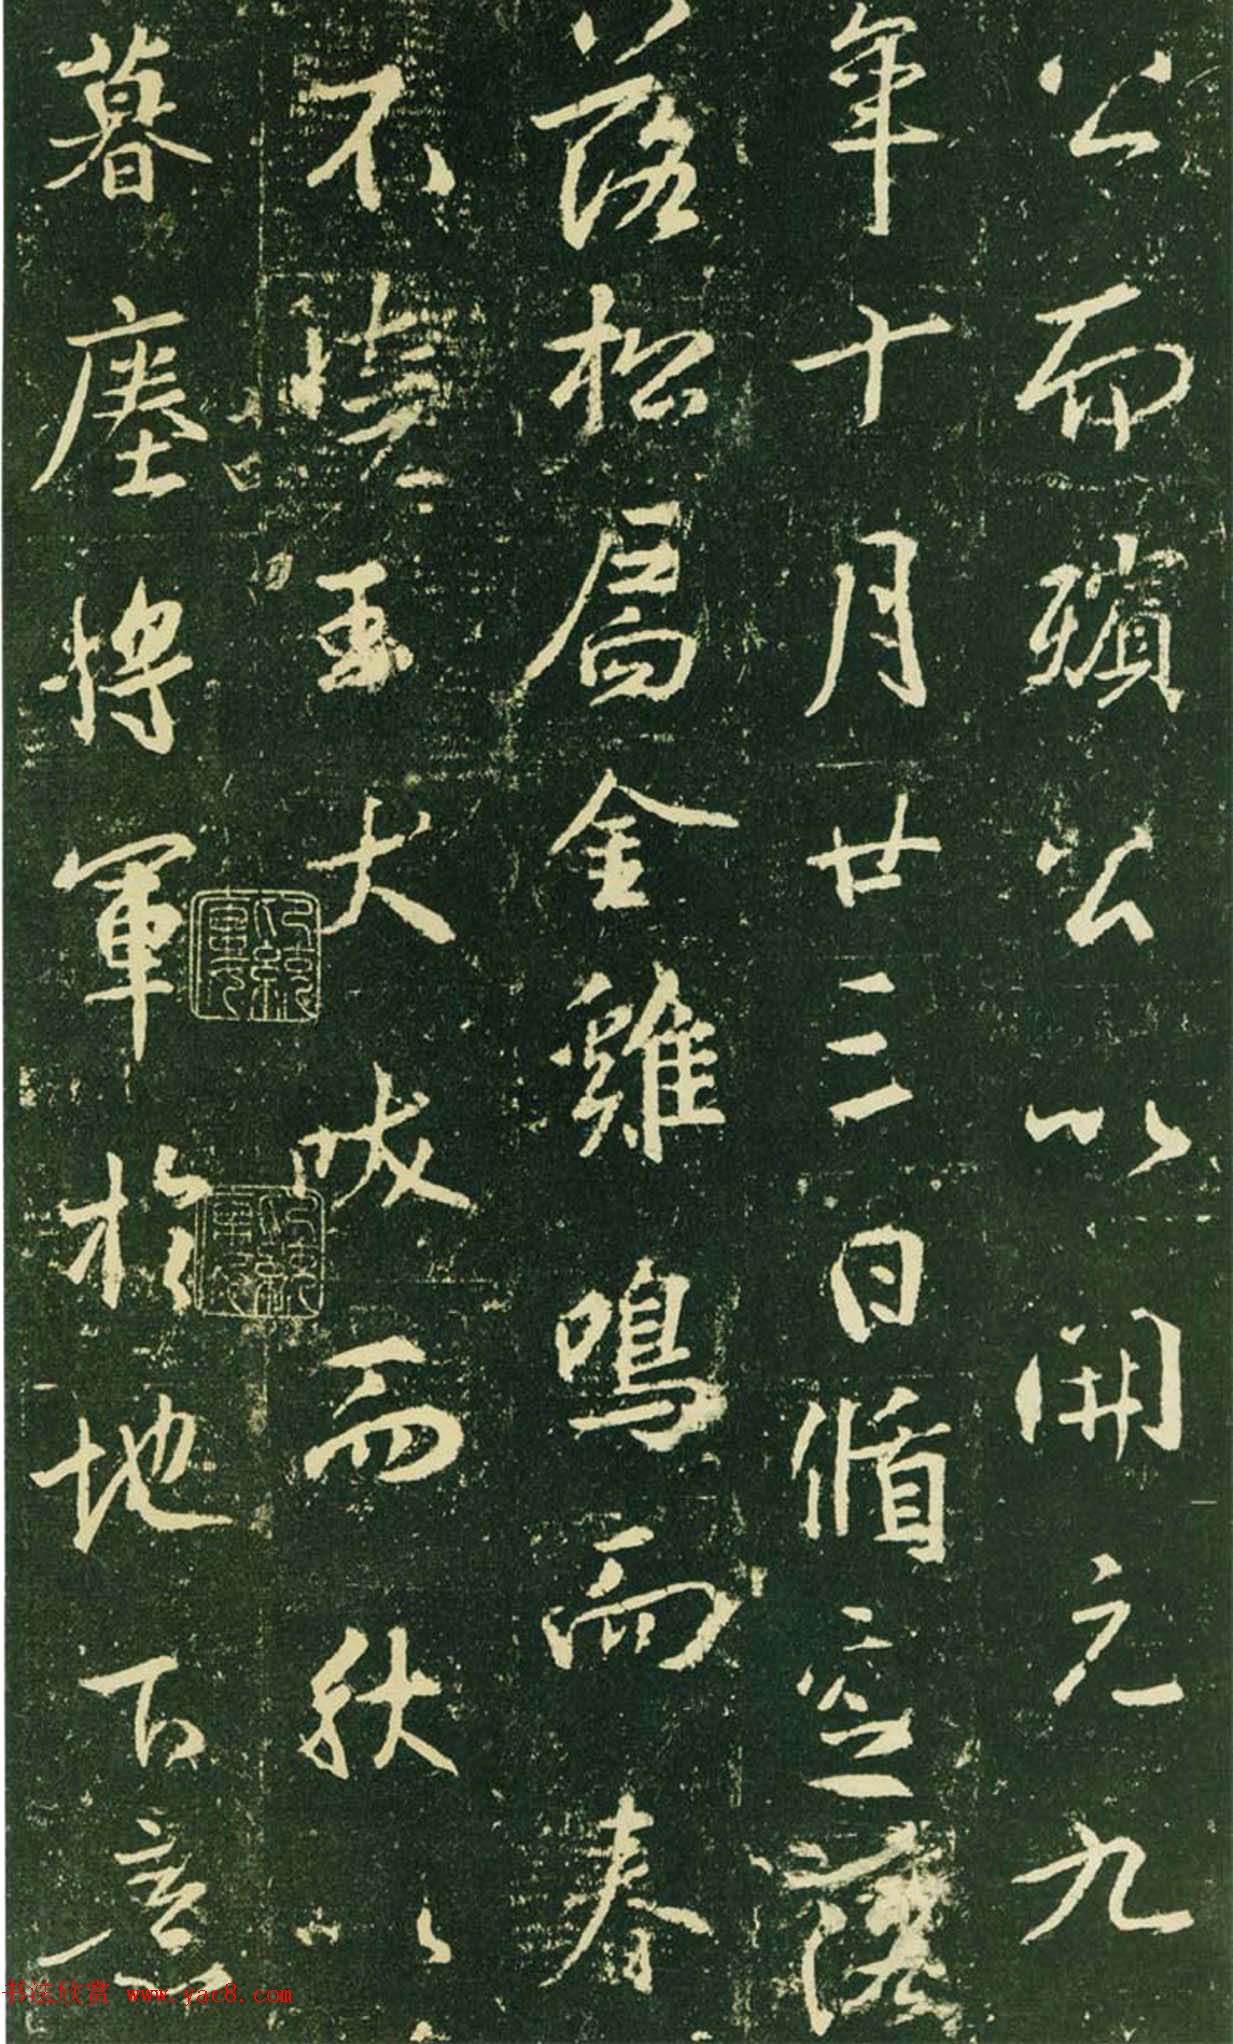 公而殯公以開元九
年十月廿三日落
落松扃金雞鳴而春
不玉犬吠而秋以
暮將軍於地
书法欣赏 www.yac8.com